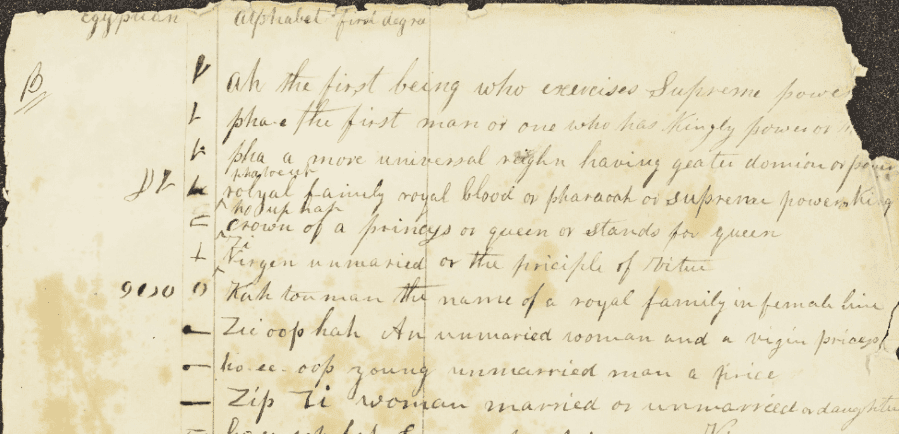 egyptian alphabet first degre
B
ah the first being who exercises Supreme power
pha-e the first man or one who has Kingly power or
pha a more universal reighn having greater dominion or power
phatoeup
royal family royal blood or pharaoah or supreme power King
ho up hah
crown of a princess or queen or stands for queen
Zi
Virgin unmaried or the priciple of virtue
Kah tou man the name of a royal family in female line
Zie oop hah An unmaried woman and a vigin princess
ho-ee-oop young unmarried man a price
Zip Zi woman married or unmarried or daughter